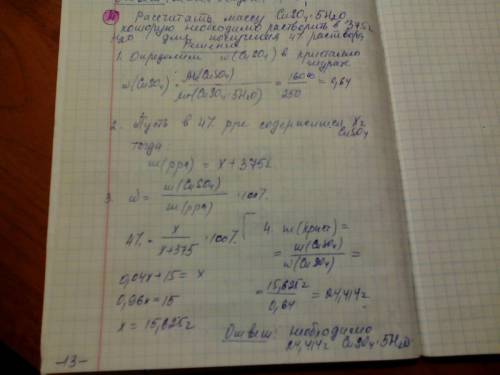 Рассчитать массу CuSO₄·5H₂O,
которую необходимо растворить в 375г
H₂O для получения 4% раствора
Решение
1. Определяем ω(CuSO₄) в кристалло
гидрате
ω(CuSO₄) = Mr(CuSO₄) / Mr(CuSO₄·5H₂O) = 160 / 250 = 0,64
2. Пусть в 4% рре содержится x г CuSO₄
тогда
m(рра) = x + 375г
3. ω = m(CuSO₄) / m(рра) · 100%
4% = x / x+375 · 100%
0,04x + 15 = x
0,96x = 15
x = 15,625г
4. m(крист) =
= m(CuSO₄) / ω(CuSO₄) =
= 15,625г / 0,64 = 24,414г
Ответ: необходимо
24,414г CuSO₄·5H₂O
-13-